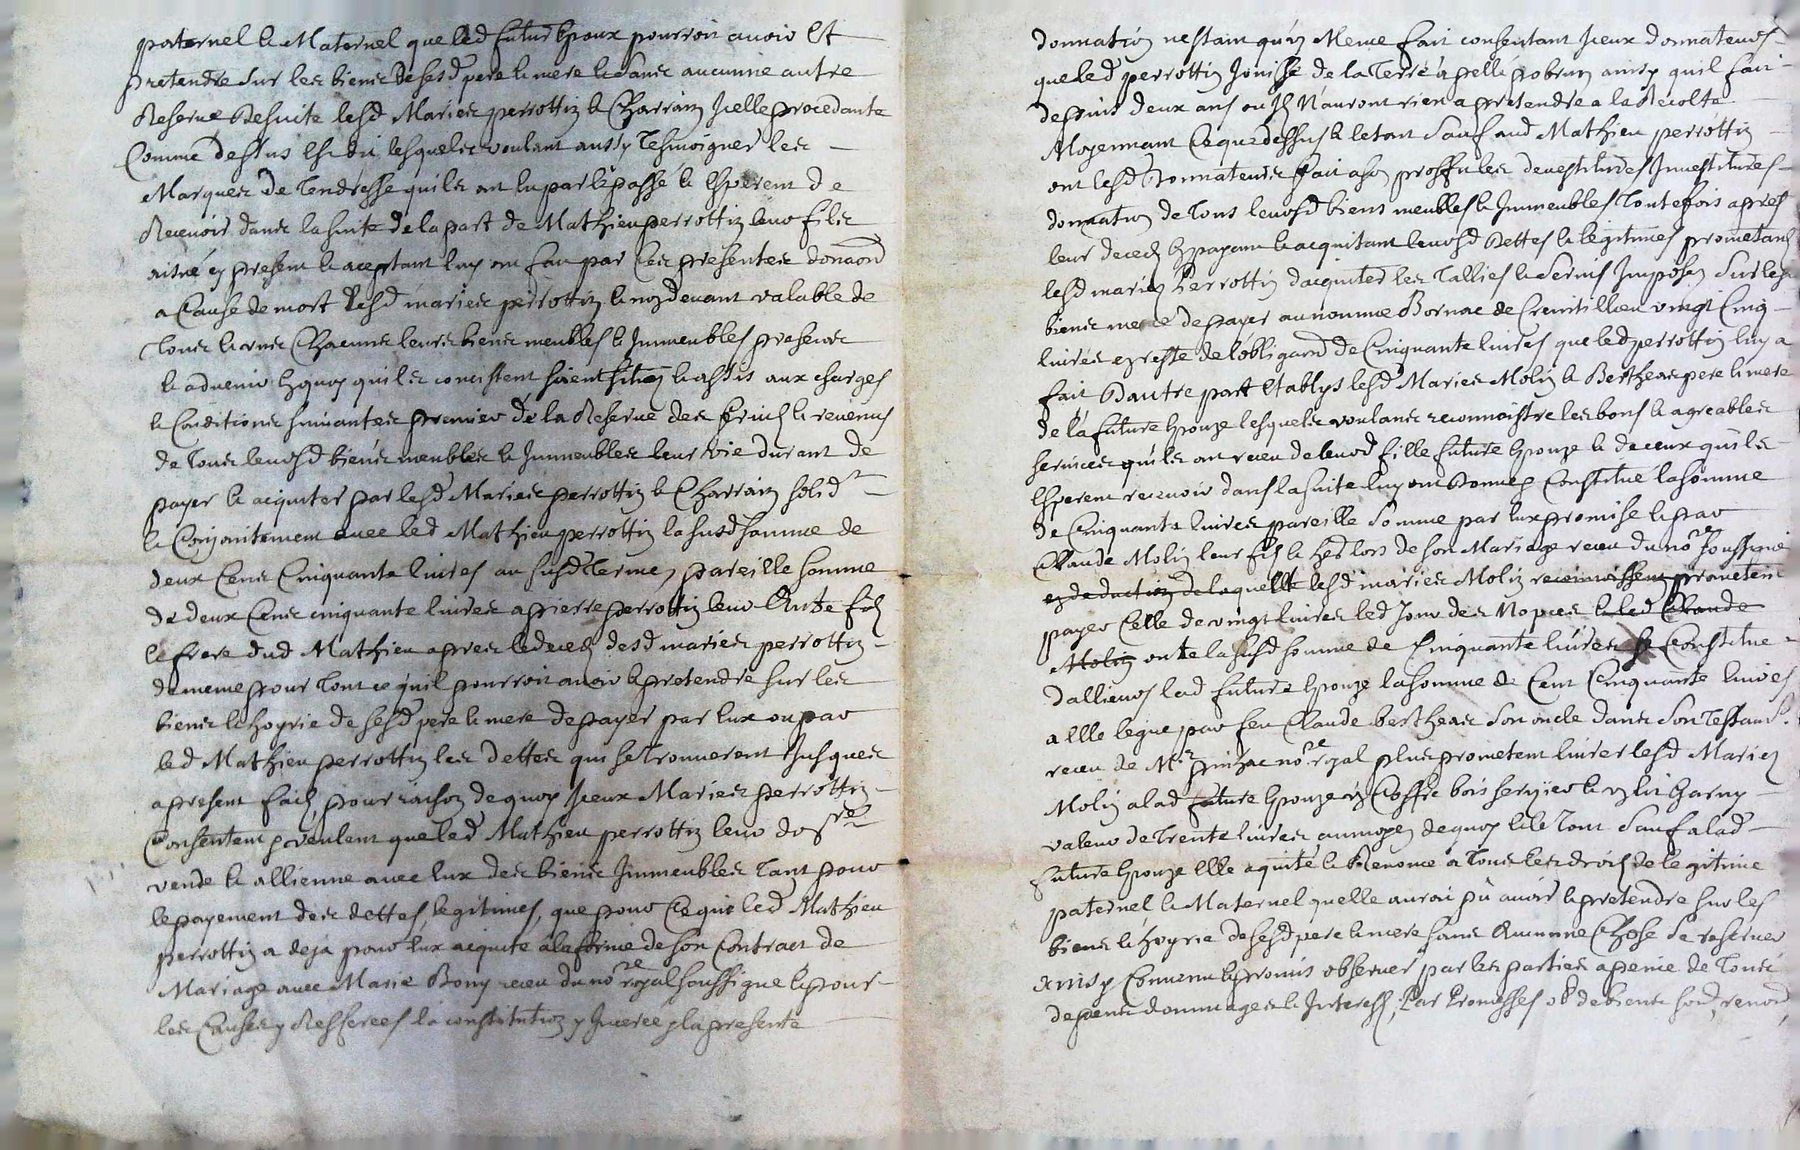 paternel & Maternel que led futur Epoux pourroit avoir Et
pretendre sur les biens de sesd pere & mere & sans aucunne autre
Reserve Desuite lesd Maries perrottin & Charrain Icelle procedante
Comme dessus Est dit lesquels voulant aussy Tesmoigner les
Marques de Tendresse quils ont Eu par le passé & Esperent de
Recevoir dans la suite de la part de Mathieu perrottin leur fils
aisné cy present & aceptant luy ont fait par Ces presentes donaon
a Cause de mort lesd maries perrottin & non devant valable de
Tous & uns Chacuns leurs biens meubles & Immeubles presents
& advenir En quoy quils concistent soient situés & assis aux charges
& Conditions suivantes premier de la Reserve des fruicts & revenus
de Tous leursd biens meubles & Immeubles leur vie durant de
payer & acquiter par lesd Maries perrottin & Charrain solid.t
& Conjointement avec led Mathieu perrottin la susd somme de
deux Cens Cinquante livres au susd Terme, pareille somme
de deux Cens cinquante livres a pierre perrottin leur Autre fils
& frere dud Mathieu apres le deces desd maries perrottin
de meme pour Tout ce quil pourroit avoir & pretendre sur les
biens & hoyrie de sesd pere & mere de payer par Eux ou par
led Mathieu perrottin les dettes qui se Trouveront Jusques
apresent faits pour raison de quoy Iceux Maries perrottin
Consentent & veulent que led Mathieu perrottin leur do.re
vende & allienne avec Eux des biens Immeubles Tant pour
le payement des dettes legitimes, que pour Ce que led Mathieu
perrottin a deja pour Eux acquité a la forme de son Contract de
Mariage avec Marie Bony receu du no.re royal soussigné & pour
les Causes y Refferees la constitution y Inseree & la presente
donnation nestant qu'un Meme fait consentant Iceux donnateurs
que led perrottin Jouisse de la Terre apellé pobrun ainsy quil fait
depuis deux ans ou Ils N'auront rien a pretendre a la Recolte
Moyennant Ce que dessus & le tout Sauf aud Mathieu perrottin
ont lesd Donnateurs fait a son proffit les devestitures Investitures
donnation de Tous leursd biens meubles & Immeubles Toutefois apres
leur deces En payant & acquitant leursd Dettes & legitimes prometant
lesd maries Perrottin d'acquiter les Tallies & Servis Imposés Sur les
biens meme de payer au nomme Bornac de Cremtilloeu vingt Cinq
livres en reste de lobligaon de Cinquante livres que led perrottin luy a
fait Dautre part Etablys lesd Maries Molin & Bertheas pere & mere
de la future Epouze lesquels voulans reconnoistre les bons & agreables
services quils ont receu de leurd fille future Epouze & de ceux quils
Esperent recevoir dans la suite luy ont Donné & Constitue la somme
de Cinquante livres pareille Somme par Eux promise & par
Claude Molin leur fils & hed lors de son Mariage receu du no.re soussigné
en deduction de laquelle lesd maries Molin reconnoissent prometent
payer Celle de vingt livres led Jour des Nopces & led Claude
Molin oute la susd somme de Cinquante livres se Constitue
dallieurs lad future Epouze la somme de Cent Cinquante livres
a Elle legué par feu Claude bertheas Son oncle dans Son Testamt.
receu de Mr pinhac no.re royal plus prometent livrer lesd Maries
Molin a lad future Epouze un Coffre bois serizier & un lit Garny
valeur de Trente livres au moyen de quoy & le Tout Sauf a lad
future Epouze Elle a quité & Renoncé a Tous les droits de legitime
paternel & Maternel quelle auroit pû avoir & pretendre sur les
biens & hoyrie de sesd pere & mere sans Aucunne Chose Se reserver
ainsy Convenu & promis observer par les parties a peine de Tous
depens dommages & Interests, Par Promesses ob de biens soud, renond,